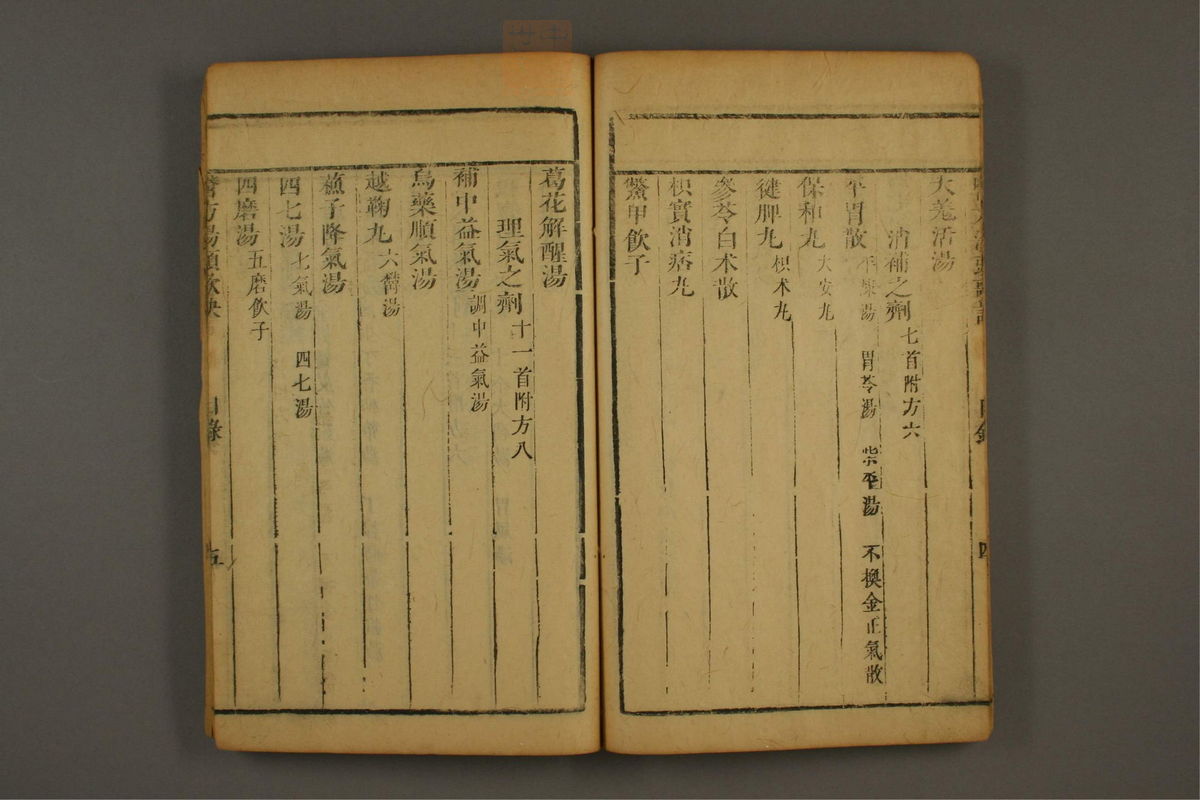 大羗活湯
消補之劑 七首附方六
平胃散 平陳湯 胃苓湯 柴平湯 不換金正氣散
保和丸 大安丸
健脾丸 枳术丸
參苓白术散
枳實消痞丸
鱉甲飲子
葛花解醒湯
理氣之劑 十一首附方八
補中益氣湯 調中益氣湯
烏藥順氣湯
越鞠丸 六鬱湯
蘓子降氣湯
四七湯 七氣湯 四七湯
四磨湯 五磨飲子
醫方湯頭歌訣 目錄 五